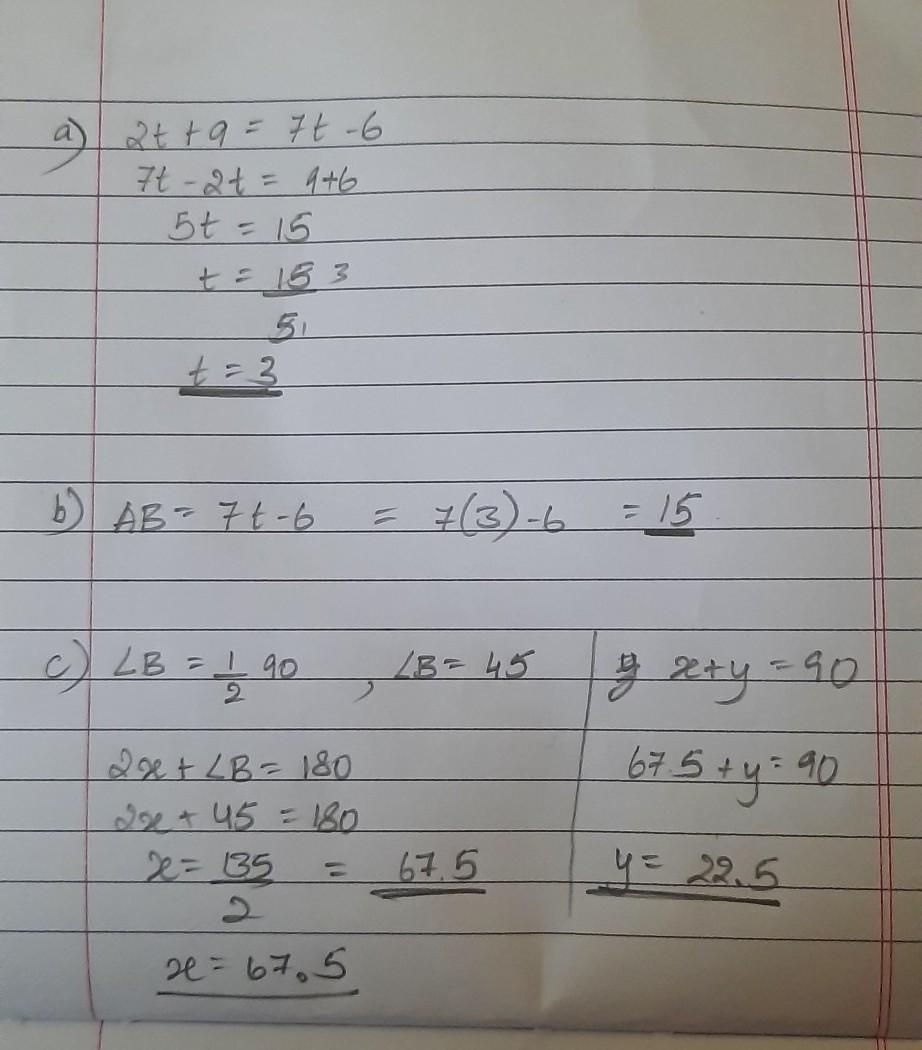 a) 2t + 9 = 7t - 6
7t - 2t = 9+6
5t = 15
t = 15 3
5 1
t = 3
b) AB = 7t - 6 = 7(3) - 6 = 15
c) ∠B = 1/2 90 , ∠B = 45
2x + ∠B = 180
2x + 45 = 180
x = 135/2 = 67.5
x = 67.5
y x + y = 90
67.5 + y = 90
y = 22.5